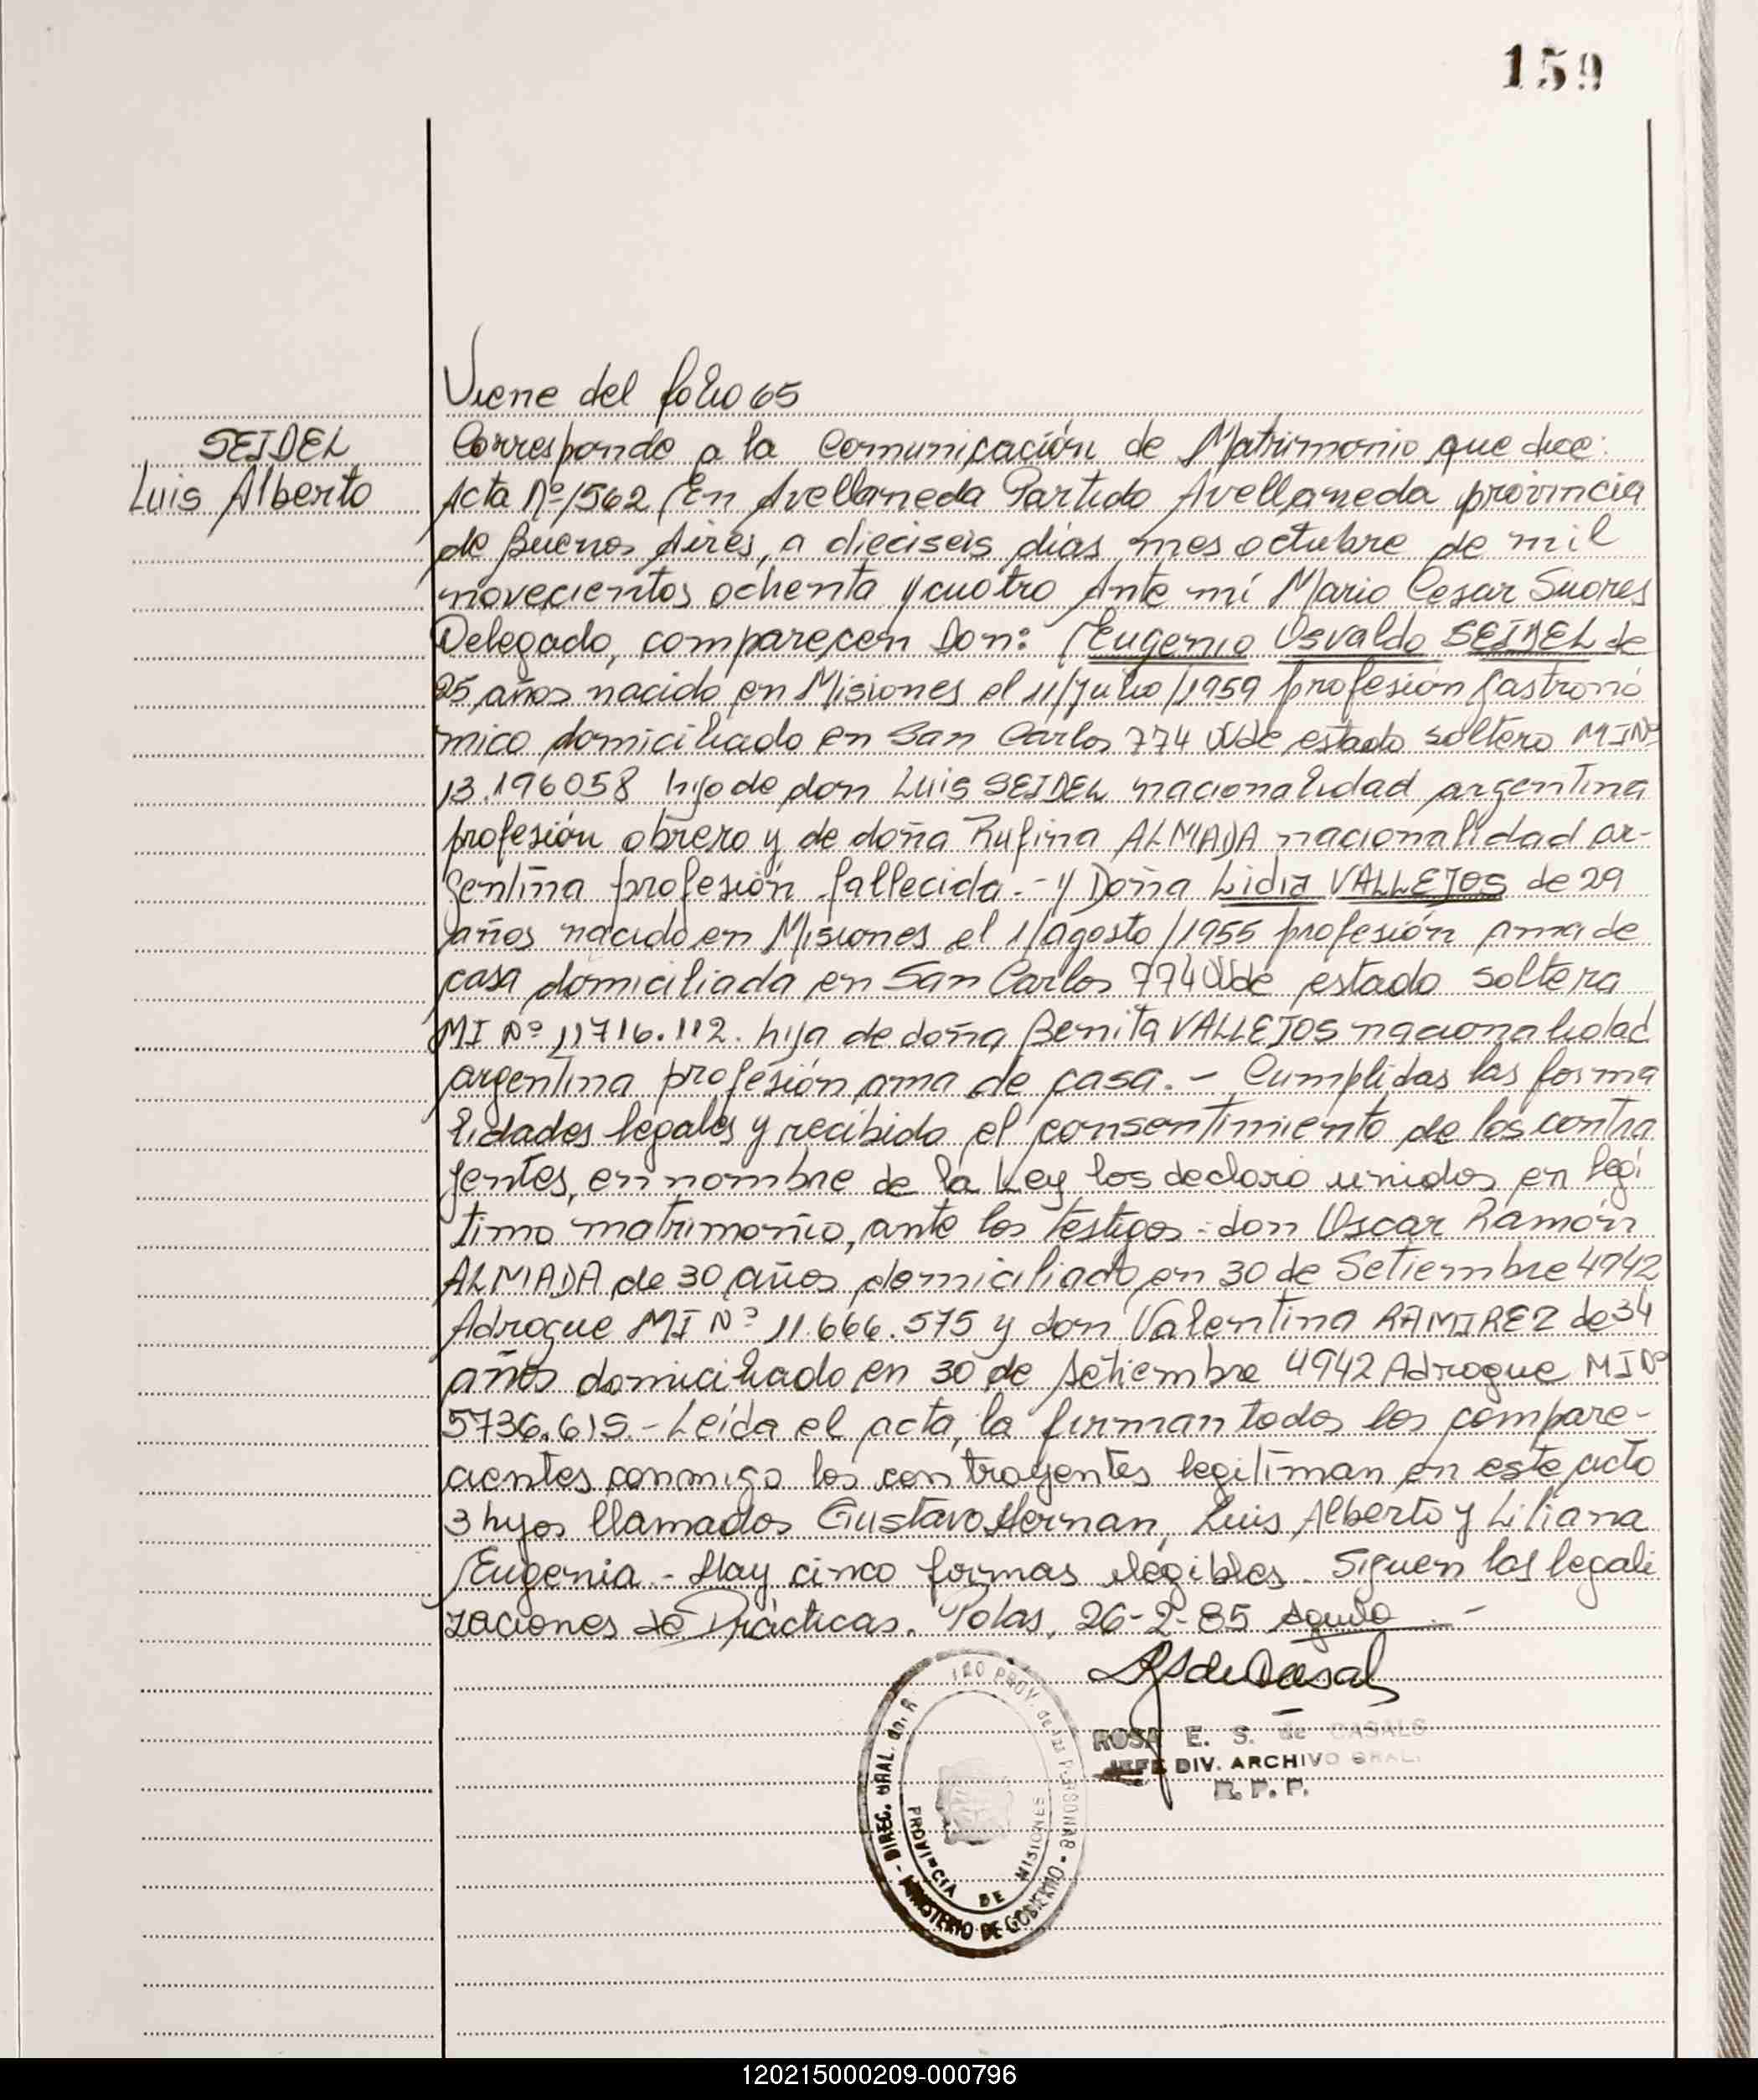 159
Viene del folio 65
SEIDEL
Luis Alberto
Corresponde a la Comunicación de Matrimonio que dice:
Acta Nº 1562 En Avellaneda Partido Avellaneda provincia
de Buenos Aires, a dieciseis días mes octubre de mil
novecientos ochenta y cuatro Ante mí Mario Cesar Suares
Delegado, comparecen Don: Eugenio Osvaldo SEIDEL de
25 años nacido en Misiones el 11/Julio/1959 profesión gastronó
mico domiciliado en San Carlos 774 Wde estado soltero MINº
13.196058 hijo de don Luis SEIDEL nacionalidad argentina
profesión obrero y de doña Rufina ALMADA nacionalidad ar-
gentina profesión fallecida.- y Doña Lidia VALLEJOS de 29
años nacido en Misiones el 1/agosto/1955 profesión ama de
casa domiciliada en San Carlos 774 Wde estado soltera
MI Nº 11716.112. hija de doña Benita VALLEJOS nacionalidad
argentina profesión ama de casa.- Cumplidas las forma
lidades legales y recibido el consentimiento de los contra
yentes, en nombre de la Ley los declaro unidos en legí
timo matrimonio, ante los testigos: don Oscar Ramón
ALMADA de 30 años domiciliado en 30 de Setiembre 4942
Adrogue MI Nº 11.666.575 y don Valentina RAMIREZ de 34
años domiciliado en 30 de setiembre 4942 Adrogue MINº
5736.615.- Leída el acta, la firman todos los compare-
cientes conmigo los contrayentes legitiman en este acto
3 hijos llamados Gustavo Hernan, Luis Alberto y Liliana
Eugenia - Hay cinco formas ilegibles. Siguen las legali
zaciones de Prácticas. Pdas, 26-2-85
ROSA E. S. de CASALS
JEFE DIV. ARCHIVO GRAL.
R. P. P.
DIREC. GRAL. PROV. de las PERSONAS
MINISTERIO DE GOBIERNO
PROVINCIA DE MISIONES
120215000209-000796